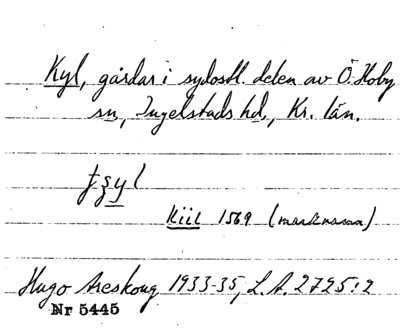 Kyl, gårdar i sydöstl. delen av Ö. Hoby
sn, Ingelstads hd, Kr. län.
ţşyl
Kiil 1569 (marknamn)
Hugo Areskoug 1933-35, L.A. 2795:2
Nr 5445